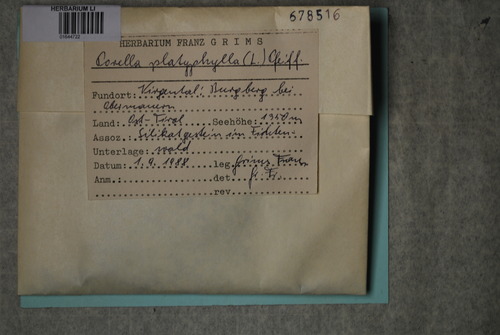 HERBARIUM LI
678516
HERBARIUM FRANZ GRIMS
Porella platyphylla (L.) Pfeiff.
Fundort: Virgental: Burgberg bei
Obermauern
Land: Ost-Tirol Seehöhe: 1350m
Assoz. Silikatgestein im Fichten-
Unterlage: wald
Datum: 1.9.1988 leg. Grims Franz
Anm.: det. Gr. Fr.
rev.